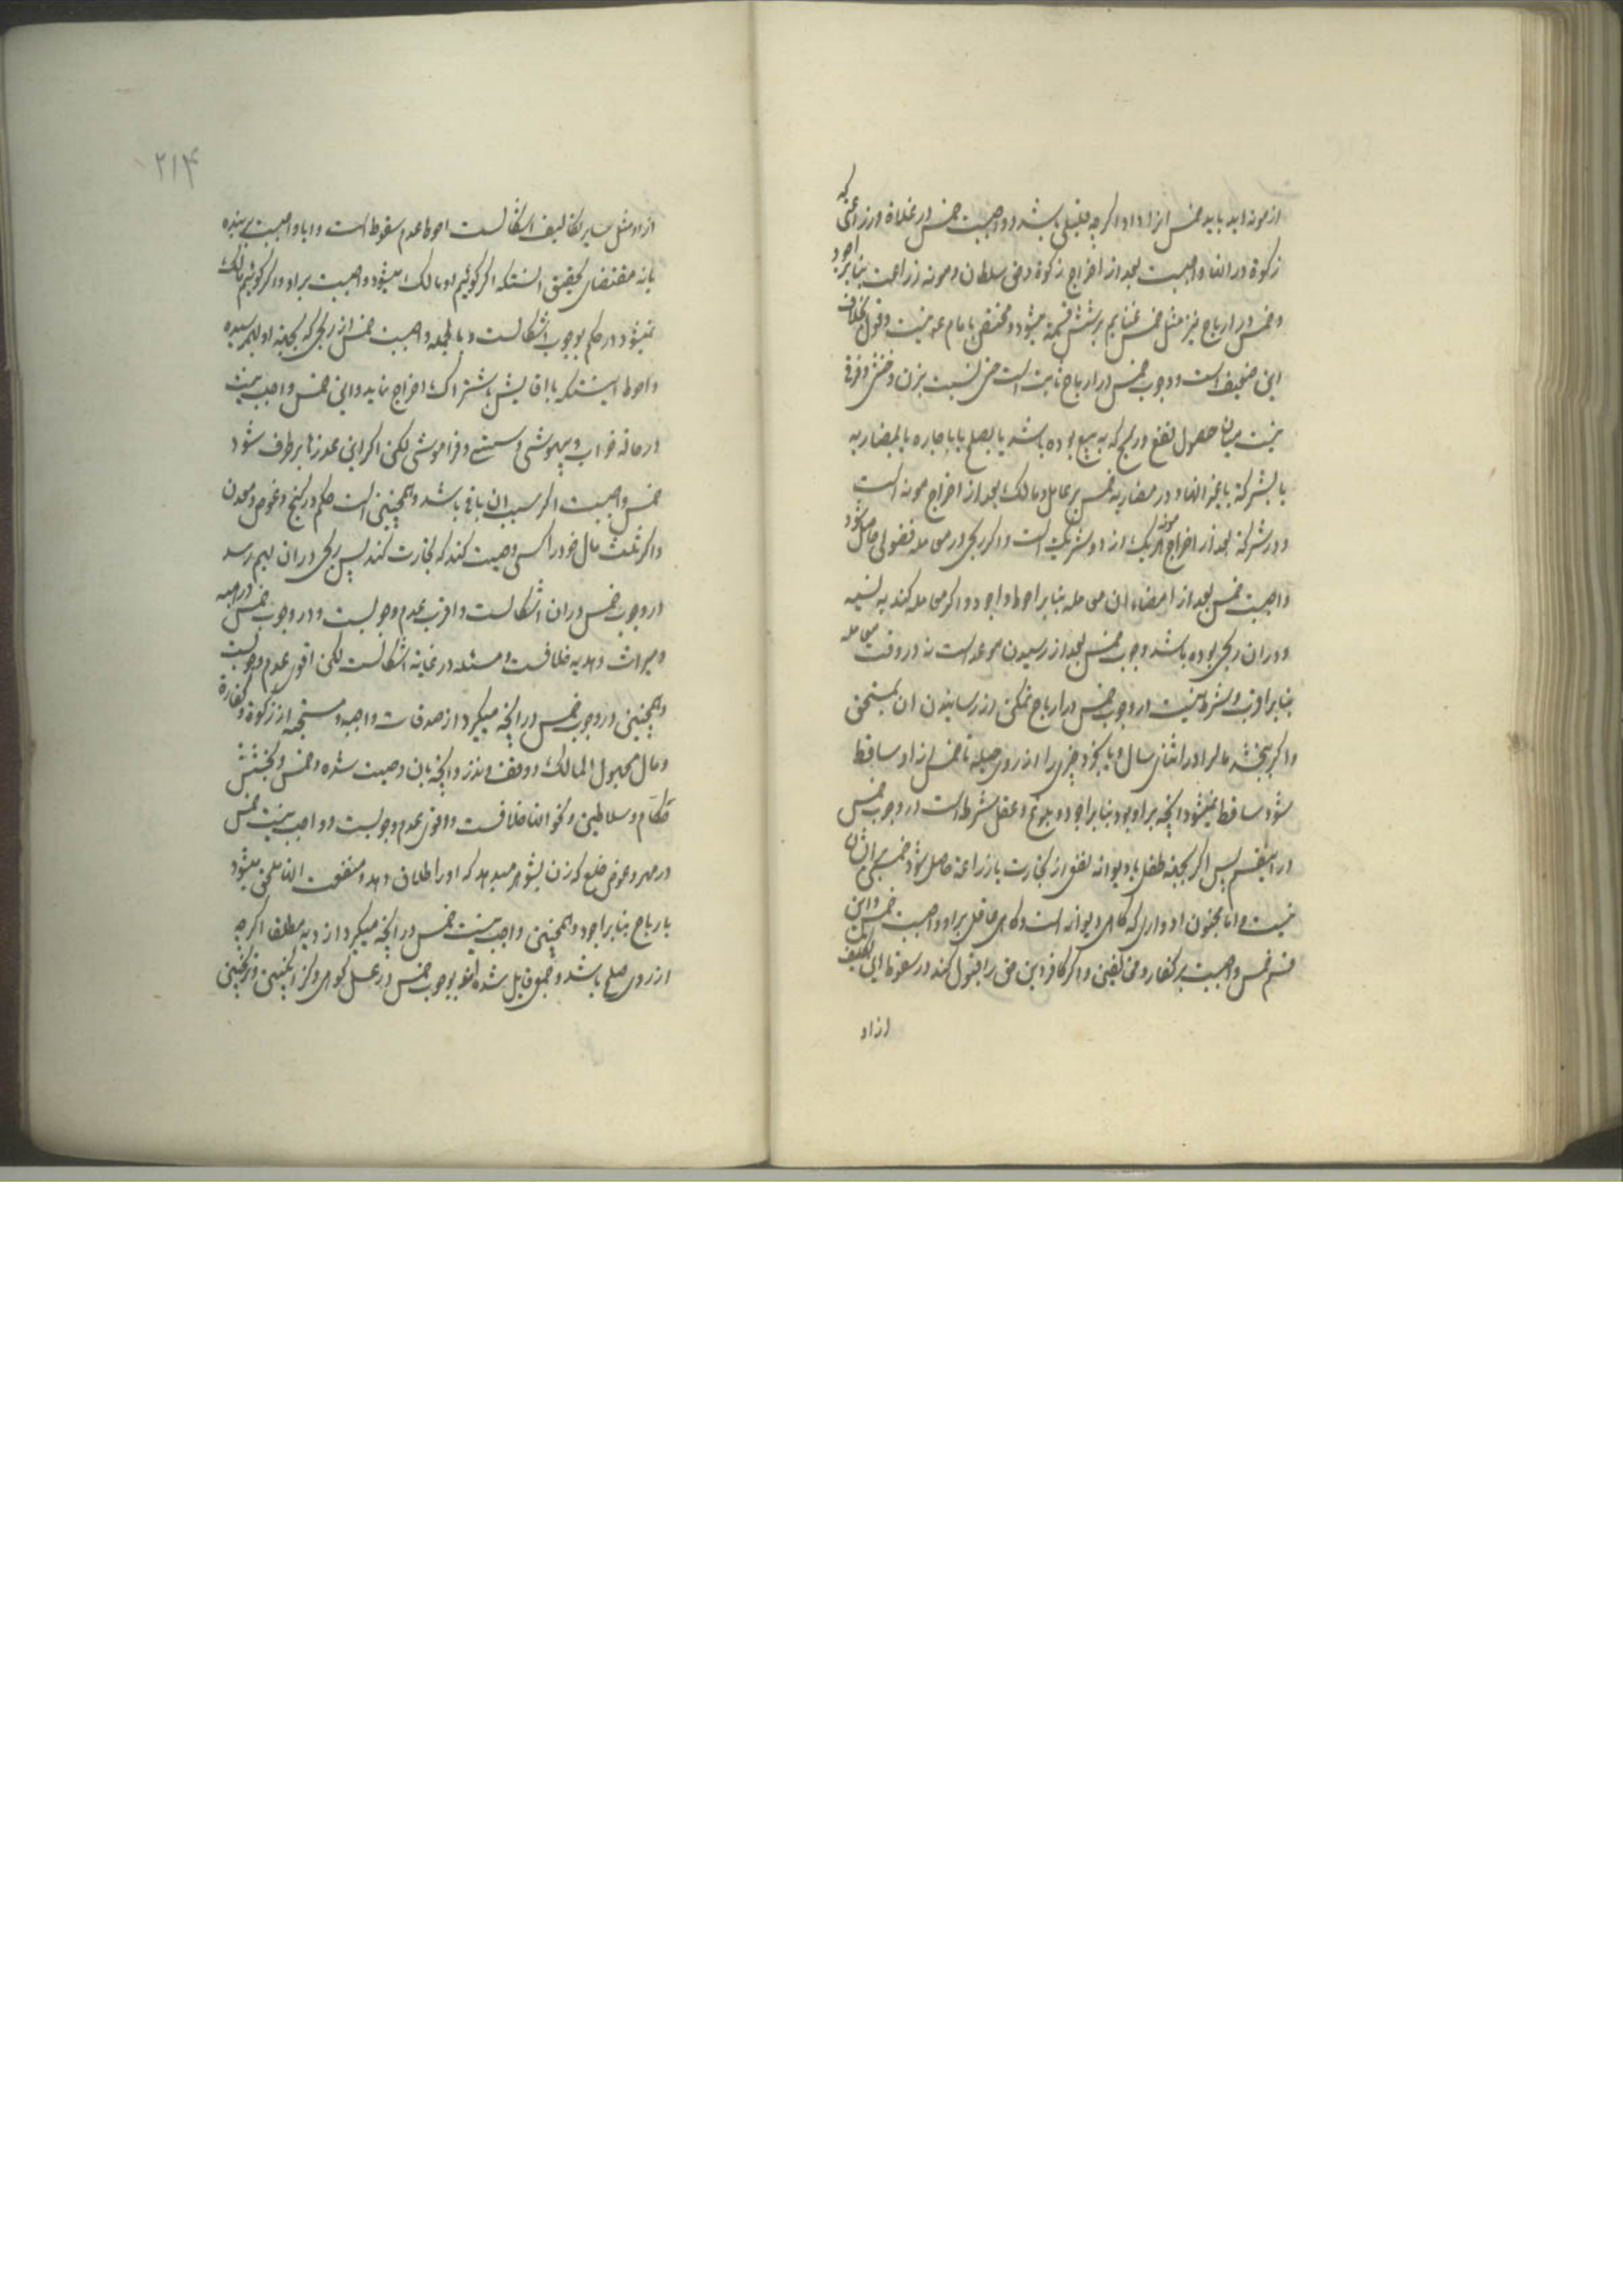 ازمونه اید باید خمس انرا داد اگرچه قلیلی باشد و واجبست خمس در غلاة و زراعتی که
زکوة در انها واجبست بعد از اخراج زکوة و حق سلطان و مونه زراعت بنابر اجود
و خمس در ارباح نیز مثل خمس غنایم بر شش قسمة میشود و مختص بامام ع نیست و قول بخلاف
این ضعیف است و وجوب خمس در ارباح ثابت است حتی نسبت بزن و خنثی و فرقی
نیست میان حصول نفع و ربح که به بیع بوده باشد یا بصلح یا باجاره یا بمضاربه
یا بشرکة یا بغیر انها و در مضاربه خمس بر عامل و مالک بعد از اخراج مونه است
و در شرکة بعد از اخراج مونه هر یک از دو شریک است و اگر ربحی در معامله فضولی حاصل شود
واجبست خمس بعد از امضاء ان معامله بنابر احوط و اجود و اگر معامله کند به نسیه
و دران ربحی بوده باشد وجوب خمس بعد از رسیدن موعد است نه در وقت معامله
بنابر اقرب و شرط نیست در وجوب خمس در ارباح تمکن از رسانیدن ان بمستحق
و اگر ببخشد مالرا در اثنای سال و یا بخرد چیزی را از روی حیله تا خمس از او ساقط
شود ساقط نمیشود انچه بر او بود بنابر اجود و بلوغ و عقل شرط است در وجوب خمس
در اینقسم پس اگر بجهة طفل یا دیوانه نفعی از تجارت یا زراعة حاصل شود خمسی بر ایشان
نیست و اما مجنون ادواری که گاهی دیوانه است و گاهی عاقل بر او واجبست خمس و این
قسم خمس واجبست بر کفار و مخالفین و اگر کافر دین حق را قبول کند در سقوط این تکلیف
از او
۲۱۴
از او مثل سایر تکالیف اشکالست احوط عدم سقوط است و ایا واجبست بر بنده
یا نه مقتضای تحقیق انستکه اگر گوئیم او مالک میشود واجبست بر او و اگر گوئیم مالک
نمیشود در حکم بوجوب اشکالست و بالجمله واجبست خمس از ربحی که بجهة او بهمرسیده
و احوط اینستکه با اقایش باشتراک اخراج نماید و این خمس واجب نیست
در حالة خواب و بیهوشی و مستی و فراموشی لکن اگر این عذرها برطرف شود
خمس واجبست اگر سبب ان باقی باشد و همچنین است حکم در گنج و غوص و معدن
و اگر ثلث مال خود را کسی وصیت کند که تجارت کنند پس ربحی دران بهم رسد
در وجوب خمس دران اشکالست و اقرب عدم وجوبست و در وجوب خمس در هبه
و میراث و هدیه خلافست و مسئله در غایة اشکالست لکن اقوی عدم وجوبست
و همچنین در وجوب خمس در انچه میگیرد از صدقات واجبه و مستحبه از زکوة و کفارة
و مال مجهول المالک و وقف و نذر و انچه بان وصیت شده و خمس و بخشش
حکام و سلاطین و نحو انها خلافست و اقوی عدم وجوبست و واجب نیست خمس
در مهر و عوض خلع که زن بشوهر میدهد که او را طلاق دهد و منفعت انها ملحق میشود
بارباح بنابر اجود و همچنین واجب نیست خمس در انچه میگیرد از دیه مطلقا اگرچه
از روی صلح باشد و جمعی قایل شده اند بوجوب خمس در عسل کوهی و گزانگبین و ترنجبین